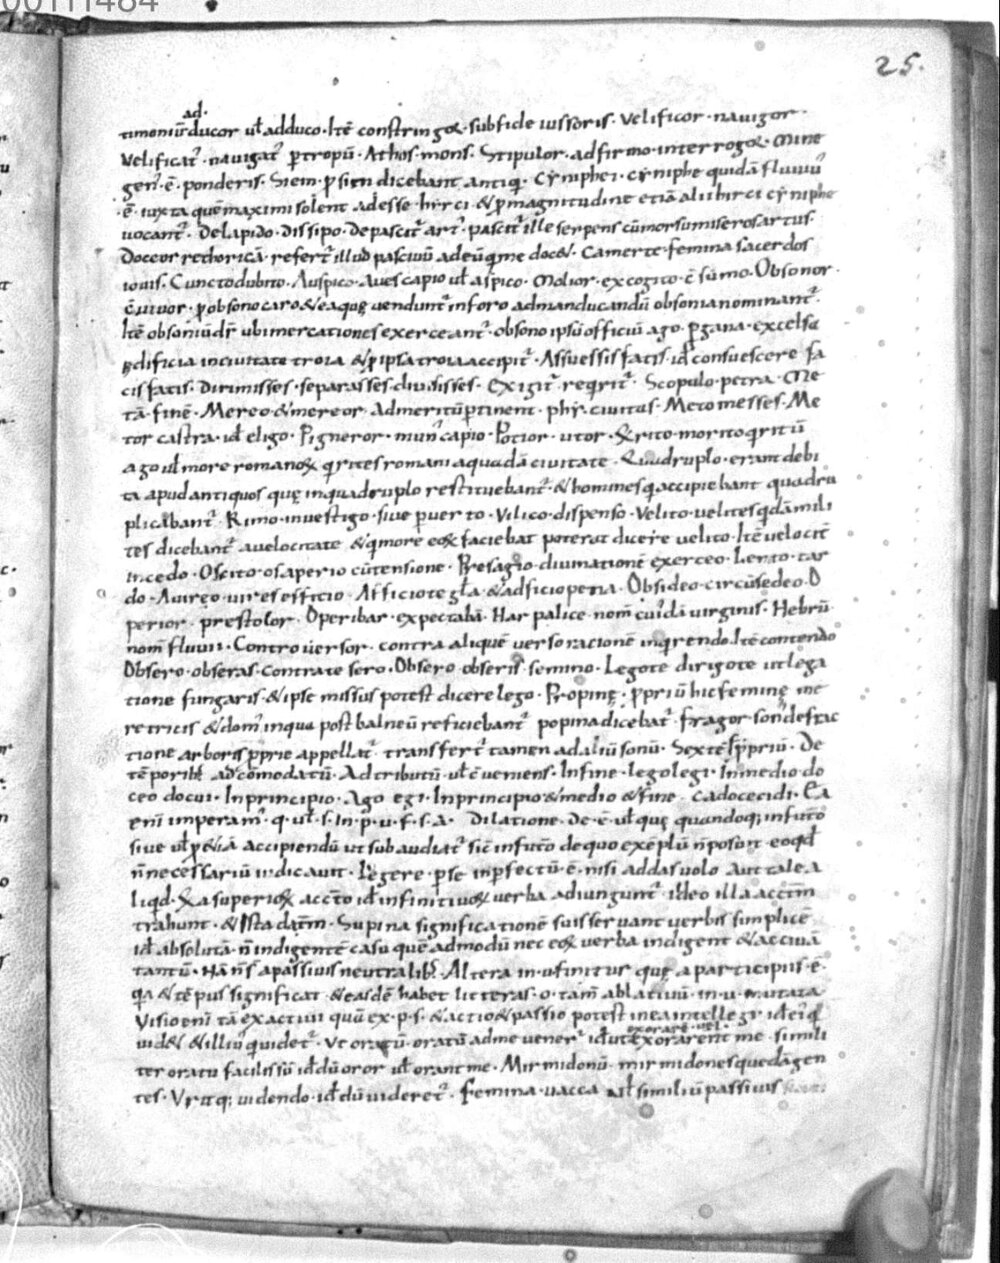 25.
ad.
timoniū ducor ul̄ adduco. Itē constringor. subfide iussoris. Velificor. nauigor.
Velificat̄. nauigat̄ ꝑtropū. Athos. mons. Stipulor. adfirmo. interrogor. Mine
gen̄. ē. ponderis. Siem. ꝓ sim dicebant antiqi. Cyniphei. cyniphe quidā fluuiū
.ē. iuxta quē maximi solent adesse hirci. & ꝓmagnitudine etiā alii hirci cyniphe
uocant̄. Delapido. dissipo. depascit̄ art̄. pascit̄ ille serpens cū morsu miseros artus.
Doceor rethoricā. refert̄ illud passiuū ad eū qi me doc&. Camerte. femina sacerdos
iouis. Cunctodubito. Auspico. Aues capio ul̄ aspico. Molior. excogito. c̄sūmo. Obsonor.
c̄uiuor. ꝓobsono caro & eaque uendunt̄ in foro ad manducandū obsonia nominant̄.
Itē obsoniū dr̄ ubi mercationes exerceant̄. obsono ipsū officiū ago. ꝑgama. excelsa
ędificia inciuitate troia & ꝓ ipsa troia accipit̄. Assuessis fatis. id̄ consuescere fa
cis fatis. Dirimisses. separasses. diuisisses. Exigit̄. reqrit̄. Scopulo. petra. Me
tā. finē. Mereo. & mereor. Ad meritū ꝑtinent. phir. ciuitas. Meto messes. Me
tor castra. id̄ eligo. Pigneror. mun̄ capio. Potior. utor. Qrito. morito qritū
ago ul̄ more romanoꝝ qrites romani a quadā ciuitate. Quadruplo. erant debi
ta apud antiquos quę inquadruplo restituebant̄. & homines qi accipiebant quadru
plicabant̄. Rimo. inuestigo. siue ꝑuerto. Vilico. dispenso. Velito. uelites qdā mili
tes dicebant̄ a uelocitate & qi more eoꝝ faciebat poterat dicere uelito. Itē uelocit̄
incedo. Oscito. os aperio cū tensione. Presagio. diuinationē exerceo. Lento. tar
do. Auireo. uires efficio. Afficio te gl̄a. & adficio pena. Obsideo. circūsedeo. O
perior. prestolor. Operibar. expectabā. Harpalice. nom̄ cuidā uirginis. Hebrū.
nom̄ fluuii. Controuersor. contra aliquē uerso racionē inqrendo. Itē contendo
Obsero. obseras. contrate sero. Obsero obseris. semino. Lego te dirigo te ut lega
tione fungaris. & ipse missus potest dicere lego. Propinę. ꝓpriū hic feminę me
retricis & dom̄ inqua post balneū reficiebant̄ popina dicebat̄. Fragor. son̄ defrac
tione arboris ꝓprie appellat̄. transfert̄ tamen ad aliū sonū. Sextē ꝓpriū. De
tēporib; adc̄modatū. Adtributū. ul̄ c̄ueniens. Infine. lego legi. Inmedio. do
ceo docui. Inprincipio. Ago egi. Inprincipio & medio & fine. cado cecidi. Ea
enī imperam̄. q. ul̄. s. in. p. u. f. s. a. Dilatione. de. ē. ul̄ quę quandoq; infutō
siue ul̄ p̄&iā accipiendū ut subaudiat̄ sic̄ infutō de quo exēplū n̄ posuit eoqd̄
n̄ necessariū iudicauit. Legere. ꝑse inꝑfectū. ē. nisi addas uolo aut tale a
liqd. Qa superioꝝ accc̄to id̄ infinitiuoꝝ uerba adiungunt̄. ideo illa acctm̄
trahunt. & ista dat̄m. Supina significationē suis seruant uerbis simplicē
id̄ absolutā. n̄ indigentē casu quē admodū nec eoꝝ uerba indigent & acciuā
tantū. Nā n̄ s̄ a passiuis neutralib;. Altera in. u finitur quę a participiis. ē.
qa & tēpus significat. & easdē habet litteras. o. tam̄ ablatiuū. in. u. mutata.
Visio enī tā ex actiui quā ex. p. s. & actio & passio potest in ea intellegi. id̄ ei qi
exorare. uel.
uid& & illiū qi uidet̄. Vt oratū. oratū adme uener̄ id̄ ut exorarent me. simili
ter oratu facilis sū id̄ dū oror ul̄ orant me. Mirmidonū. mirmidones quedā gen
tes. Vritq; uidendo. id̄ dū uideret̄. femina. uacca ul̄ similiū passiuis